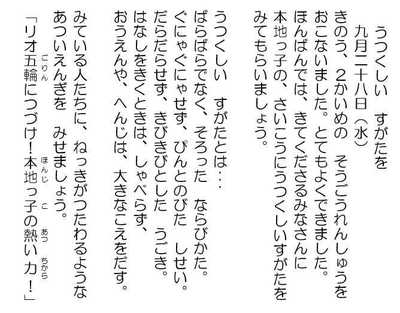 うつくしい　すがたを
九月二十八日（水）
きのう、２かいめの　そうごうれんしゅうを
おこないました。とてもよくできました。
ほんばんでは、きてくださるみなさんに
本地っ子の、さいこうにうつくしいすがたを
みてもらいましょう。
うつくしい　すがたとは…
ばらばらでなく、そろった　ならびかた。
ぐにゃぐにゃせず、ぴんとのびた　しせい。
だらだらせず、きびきびとした　うごき。
はなしをきくときは、しゃべらず、
おうえんや、へんじは、大きなこえをだす。
みている人たちに、ねっきがつたわるような
あついえんぎを　みせましょう。
「リオ五輪につづけ！本地っ子の熱い力！」
ごりん　ほんじ　こ　あつ　ちから